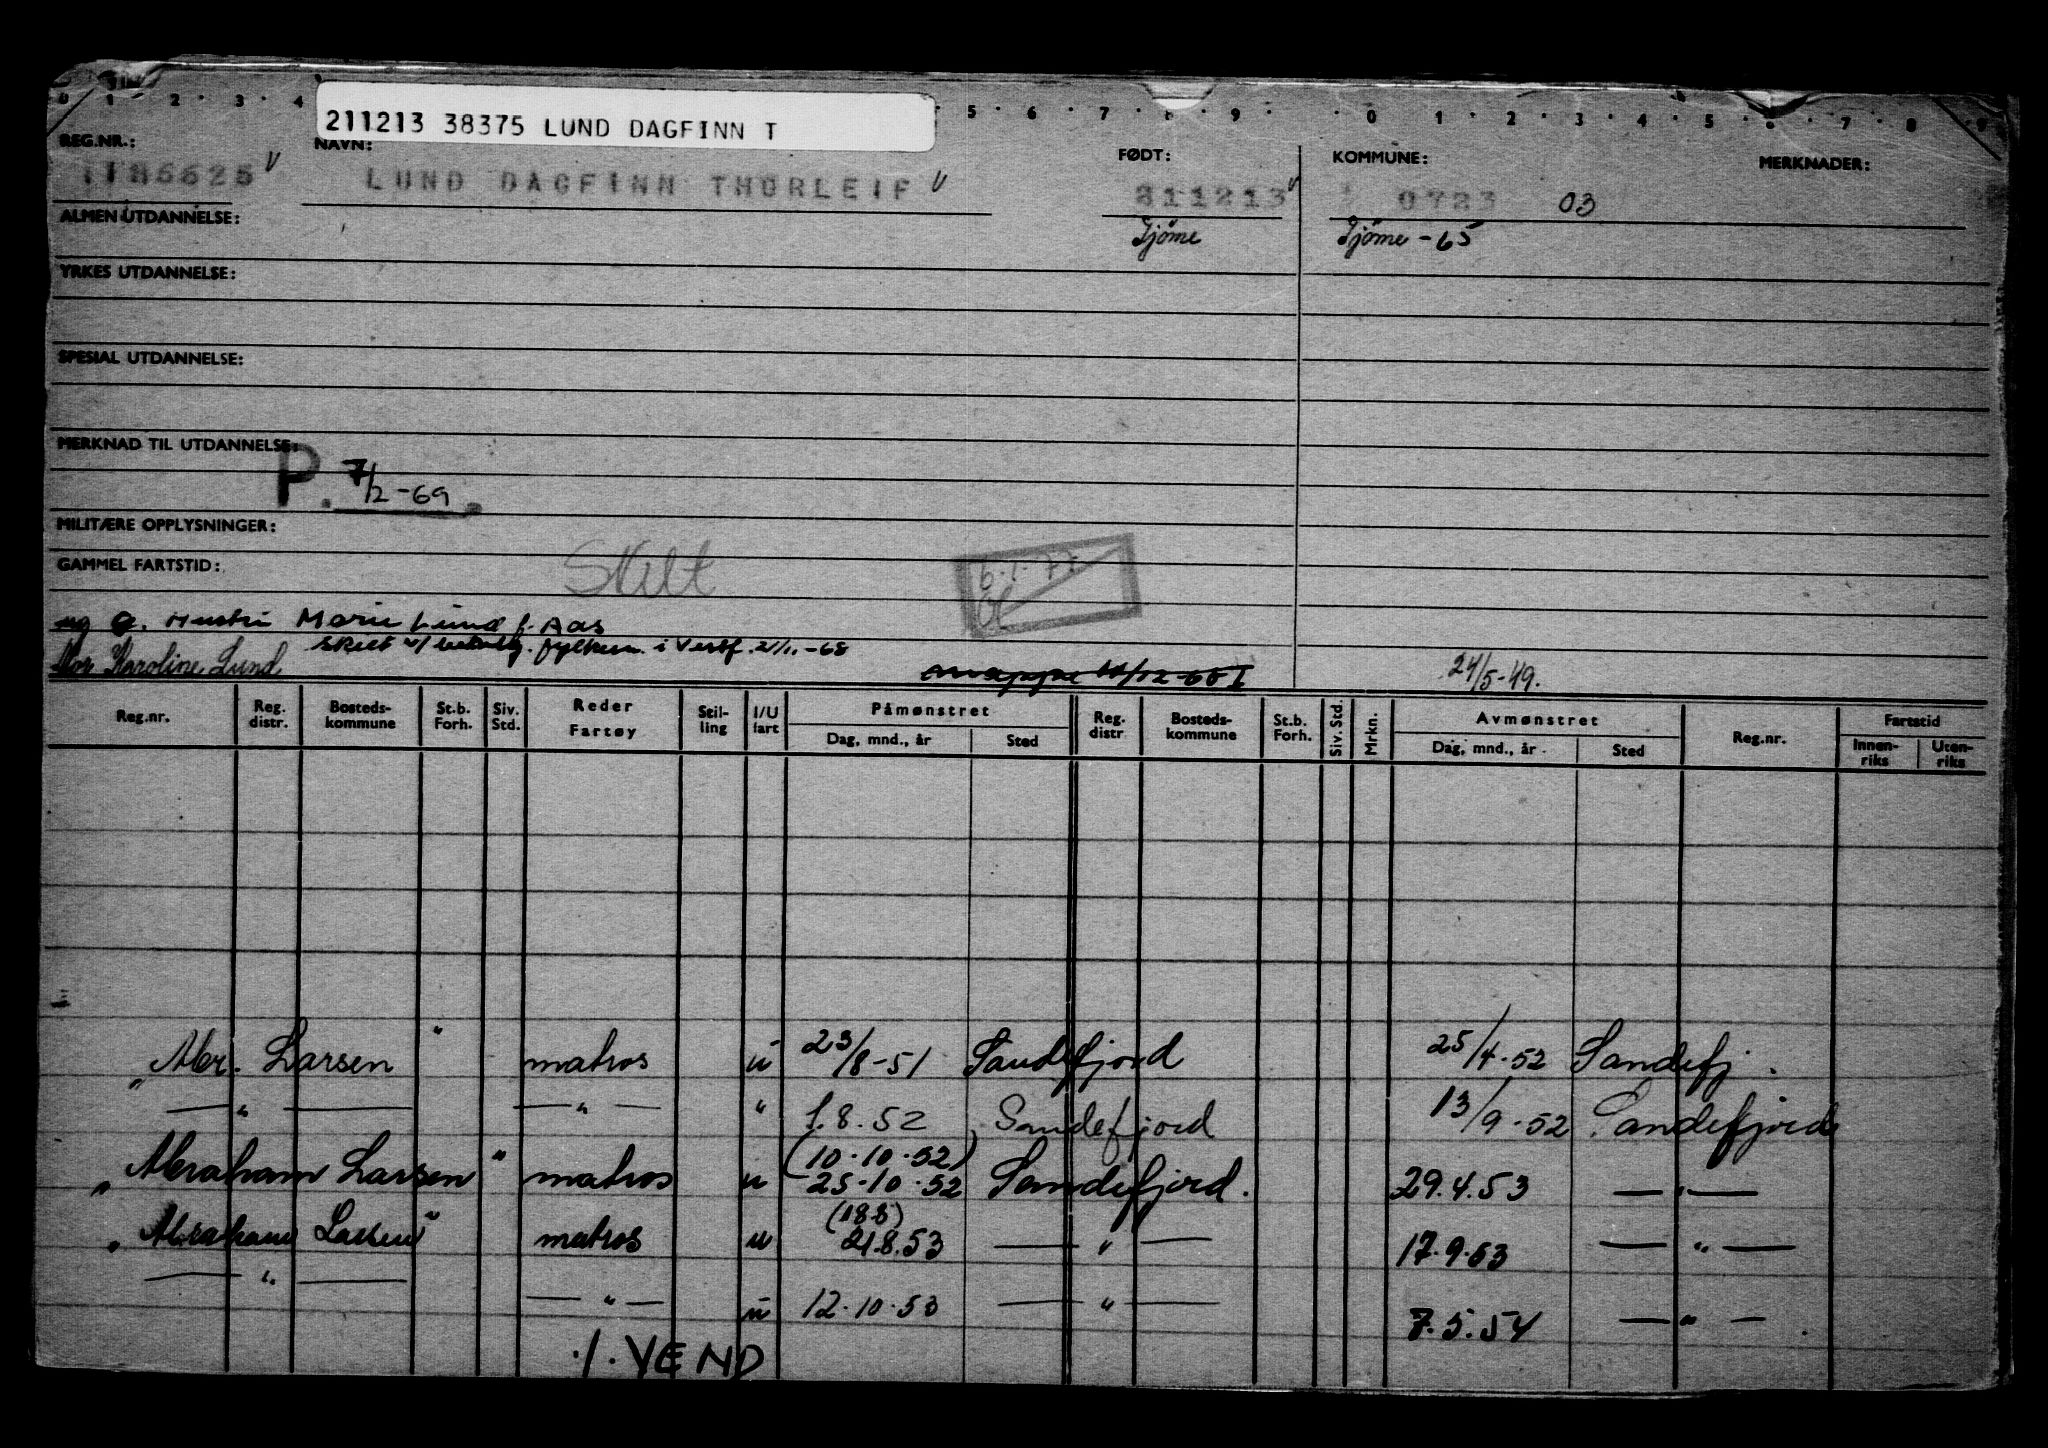 211213 38375 LUND DAGFINN T
REG.NR.: NAVN: FØDT: KOMMUNE: MERKNADER:
LUND DAGFINN THORLEIF 211213 0723 03
ALMEN UTDANNELSE: Tjöme Tjöme -65
YRKES UTDANNELSE:
SPESIAL UTDANNELSE:
MERKNAD TIL UTDANNELSE:
P. 7/2-69
MILITÆRE OPPLYSNINGER:
GAMMEL FARTSTID: Skilt 6.1.77
ug g. Hustru Marie Lund f. Aas
skilt fylkesm. i Vestf. -68
Mor Karoline Lund 24/5-49.
Reg.nr. Reg. distr. Bosteds-kommune St.b. Forh. Siv. Std. Reder Fartøy Stil-ling I/U fart Påmønstret Dag, mnd., år Sted Reg. distr Bosteds-kommune St.b. Forh. Siv. Std. Mrkn. Avmønstret Dag, mnd., år Sted Reg.nr. Fartstid Innen-riks Uten-riks
„Abr. Larsen“ matros u 23/8-51 Sandefjord 25/4-52 Sandefj.
— „ — — „ — „ 1.8.52 Sandefjord 13/9-52 Sandefjord
(10.10.52)
„Abraham Larsen“ matros u 25.10.52 Sandefjord. 29.4.53 — „ —
(18.8)
„Abraham Larsen“ matros u 21.8.53 — „ — 17.9.53 — „ —
— „ — — „ — u 12.10.53 — „ — 7.5.54 — „ —
./. VEND